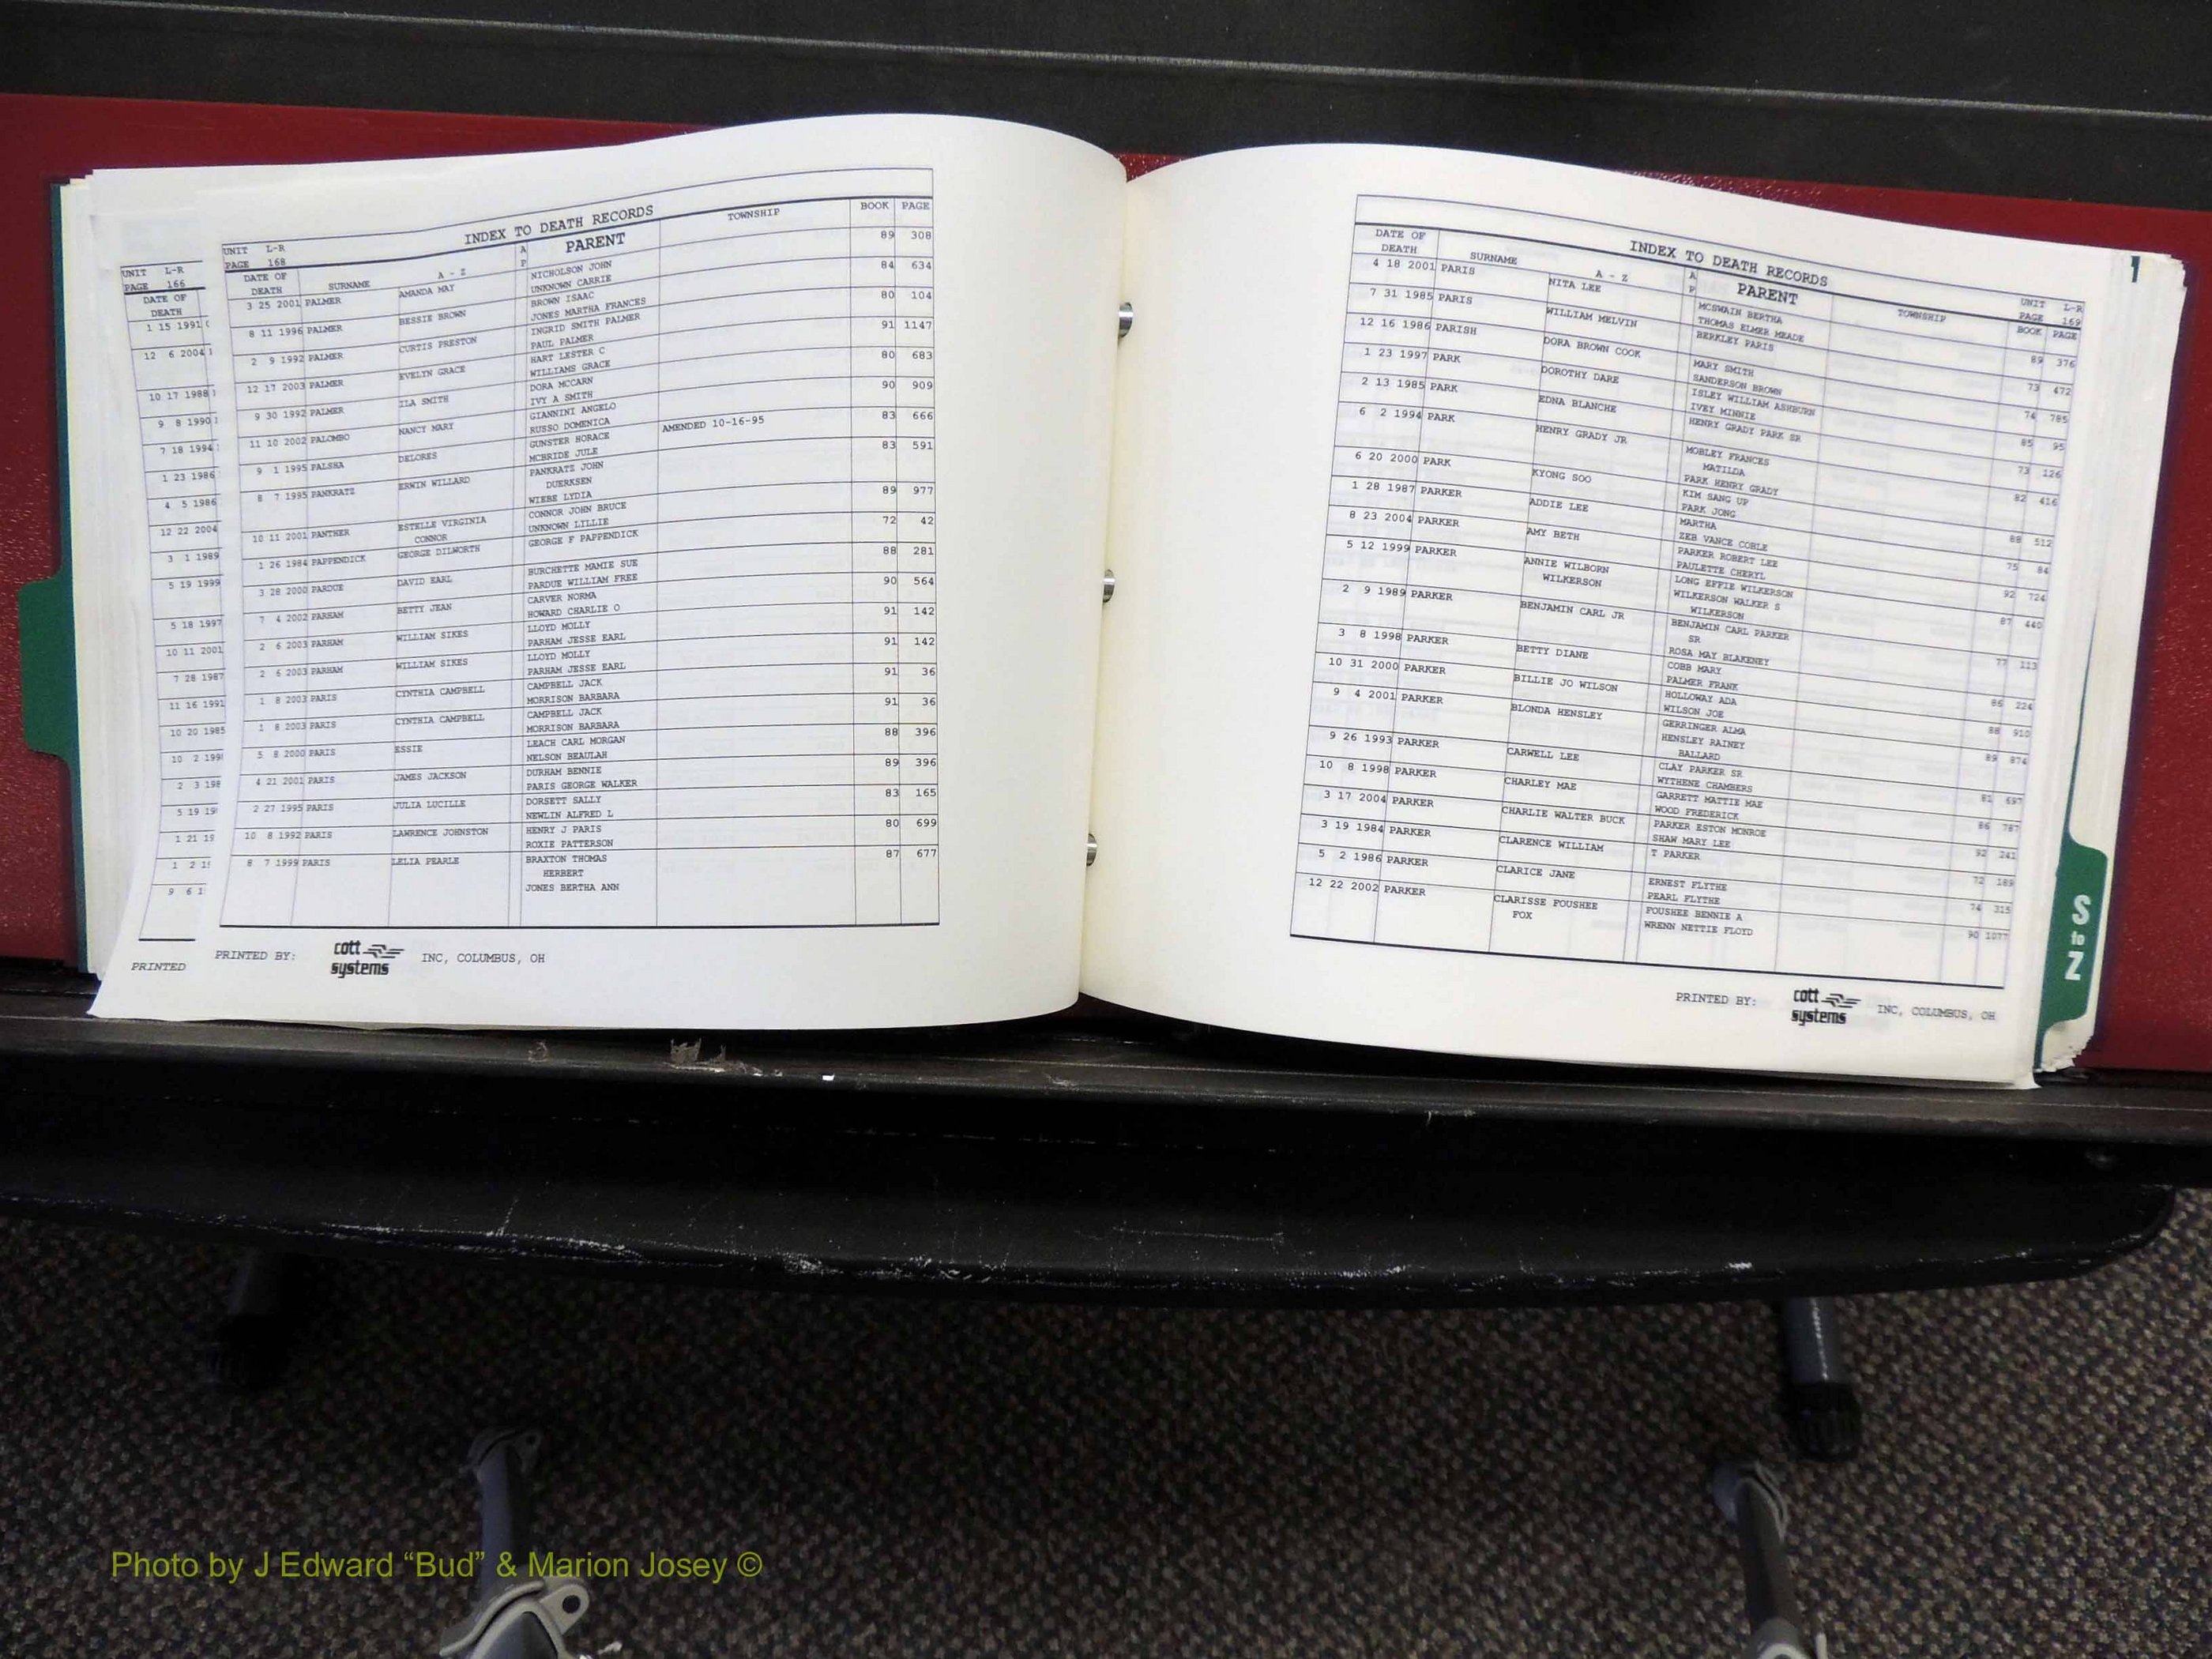 UNIT L-R
PAGE 166
DATE OF
DEATH
1 15 1991
12 6 2004
10 17 1988
9 8 1990
7 18 1994
1 23 1986
4 5 1986
12 22 2004
3 1 1989
5 19 1999
5 18 1997
10 11 2001
7 28 1987
11 16 1991
10 20 1985
10 2 199
2 3 198
5 19 19
1 21 19
1 2 1
9 6 1
PRINTED
INDEX TO DEATH RECORDS
UNIT L-R
PAGE 168
DATE OF DEATH SURNAME A - Z A P PARENT TOWNSHIP BOOK PAGE
3 25 2001 PALMER AMANDA MAY NICHOLSON JOHN 89 308
UNKNOWN CARRIE
8 11 1996 PALMER BESSIE BROWN BROWN ISAAC 84 634
JONES MARTHA FRANCES
2 9 1992 PALMER CURTIS PRESTON INGRID SMITH PALMER 80 104
PAUL PALMER
12 17 2003 PALMER EVELYN GRACE HART LESTER C 91 1147
WILLIAMS GRACE
9 30 1992 PALMER ILA SMITH DORA MCCARN 80 683
IVY A SMITH
11 10 2002 PALOMBO NANCY MARY GIANNINI ANGELO 90 909
RUSSO DOMENICA
9 1 1995 PALSHA DELORES GUNSTER HORACE AMENDED 10-16-95 83 666
MCBRIDE JULE
8 7 1995 PANKRATZ ERWIN WILLARD PANKRATZ JOHN 83 591
DUERKSEN
WIEBE LYDIA
10 11 2001 PANTHER ESTELLE VIRGINIA CONNOR JOHN BRUCE 89 977
CONNOR UNKNOWN LILLIE
1 26 1984 PAPPENDICK GEORGE DILWORTH GEORGE F PAPPENDICK 72 42
3 28 2000 PARDUE DAVID EARL BURCHETTE MAMIE SUE 88 281
PARDUE WILLIAM FREE
7 4 2002 PARHAM BETTY JEAN CARVER NORMA 90 564
HOWARD CHARLIE O
2 6 2003 PARHAM WILLIAM SIKES LLOYD MOLLY 91 142
PARHAM JESSE EARL
2 6 2003 PARHAM WILLIAM SIKES LLOYD MOLLY 91 142
PARHAM JESSE EARL
1 8 2003 PARIS CYNTHIA CAMPBELL CAMPBELL JACK 91 36
MORRISON BARBARA
1 8 2003 PARIS CYNTHIA CAMPBELL CAMPBELL JACK 91 36
MORRISON BARBARA
5 8 2000 PARIS ESSIE LEACH CARL MORGAN 88 396
NELSON BEAULAH
4 21 2001 PARIS JAMES JACKSON DURHAM BENNIE 89 396
PARIS GEORGE WALKER
2 27 1995 PARIS JULIA LUCILLE DORSETT SALLY 83 165
NEWLIN ALFRED L
10 8 1992 PARIS LAWRENCE JOHNSTON HENRY J PARIS 80 699
ROXIE PATTERSON
8 7 1999 PARIS LELIA PEARLE BRAXTON THOMAS 87 677
HERBERT
JONES BERTHA ANN
PRINTED BY: cott systems INC, COLUMBUS, OH
INDEX TO DEATH RECORDS
UNIT L-R
PAGE 169
DATE OF DEATH SURNAME A - Z A P PARENT TOWNSHIP BOOK PAGE
4 18 2001 PARIS NITA LEE MCSWAIN BERTHA 89 376
THOMAS ELMER MEADE
7 31 1985 PARIS WILLIAM MELVIN BERKLEY PARIS 73 472
MARY SMITH
12 16 1986 PARISH DORA BROWN COOK SANDERSON BROWN 74 785
1 23 1997 PARK DOROTHY DARE ISLEY WILLIAM ASHBURN 85 95
IVEY MINNIE
2 13 1985 PARK EDNA BLANCHE HENRY GRADY PARK SR 73 126
6 2 1994 PARK HENRY GRADY JR MOBLEY FRANCES 82 416
MATILDA
PARK HENRY GRADY
6 20 2000 PARK KYONG SOO KIM SANG UP 88 512
PARK JONG
1 28 1987 PARKER ADDIE LEE MARTHA 75 84
ZEB VANCE COBLE
8 23 2004 PARKER AMY BETH PARKER ROBERT LEE 92 724
PAULETTE CHERYL
5 12 1999 PARKER ANNIE WILBORN LONG EFFIE WILKERSON 87 440
WILKERSON WILKERSON WALKER S
WILKERSON
2 9 1989 PARKER BENJAMIN CARL JR BENJAMIN CARL PARKER 77 113
SR
ROSA MAY BLAKENEY
3 8 1998 PARKER BETTY DIANE COBB MARY 86 224
PALMER FRANK
10 31 2000 PARKER BILLIE JO WILSON HOLLOWAY ADA 88 910
WILSON JOE
9 4 2001 PARKER BLONDA HENSLEY GERRINGER ALMA 89 874
HENSLEY RAINEY
BALLARD
9 26 1993 PARKER CARWELL LEE CLAY PARKER SR 81 697
WYTHENE CHAMBERS
10 8 1998 PARKER CHARLEY MAE GARRETT MATTIE MAE 86 787
WOOD FREDERICK
3 17 2004 PARKER CHARLIE WALTER BUCK PARKER ESTON MONROE 92 241
SHAW MARY LEE
3 19 1984 PARKER CLARENCE WILLIAM T PARKER 72 189
5 2 1986 PARKER CLARICE JANE ERNEST FLYTHE 74 315
PEARL FLYTHE
12 22 2002 PARKER CLARISSE FOUSHEE FOUSHEE BENNIE A 90 1077
FOX WRENN NETTIE FLOYD
PRINTED BY: cott systems INC, COLUMBUS, OH
S
to
Z
Photo by J Edward “Bud” & Marion Josey ©